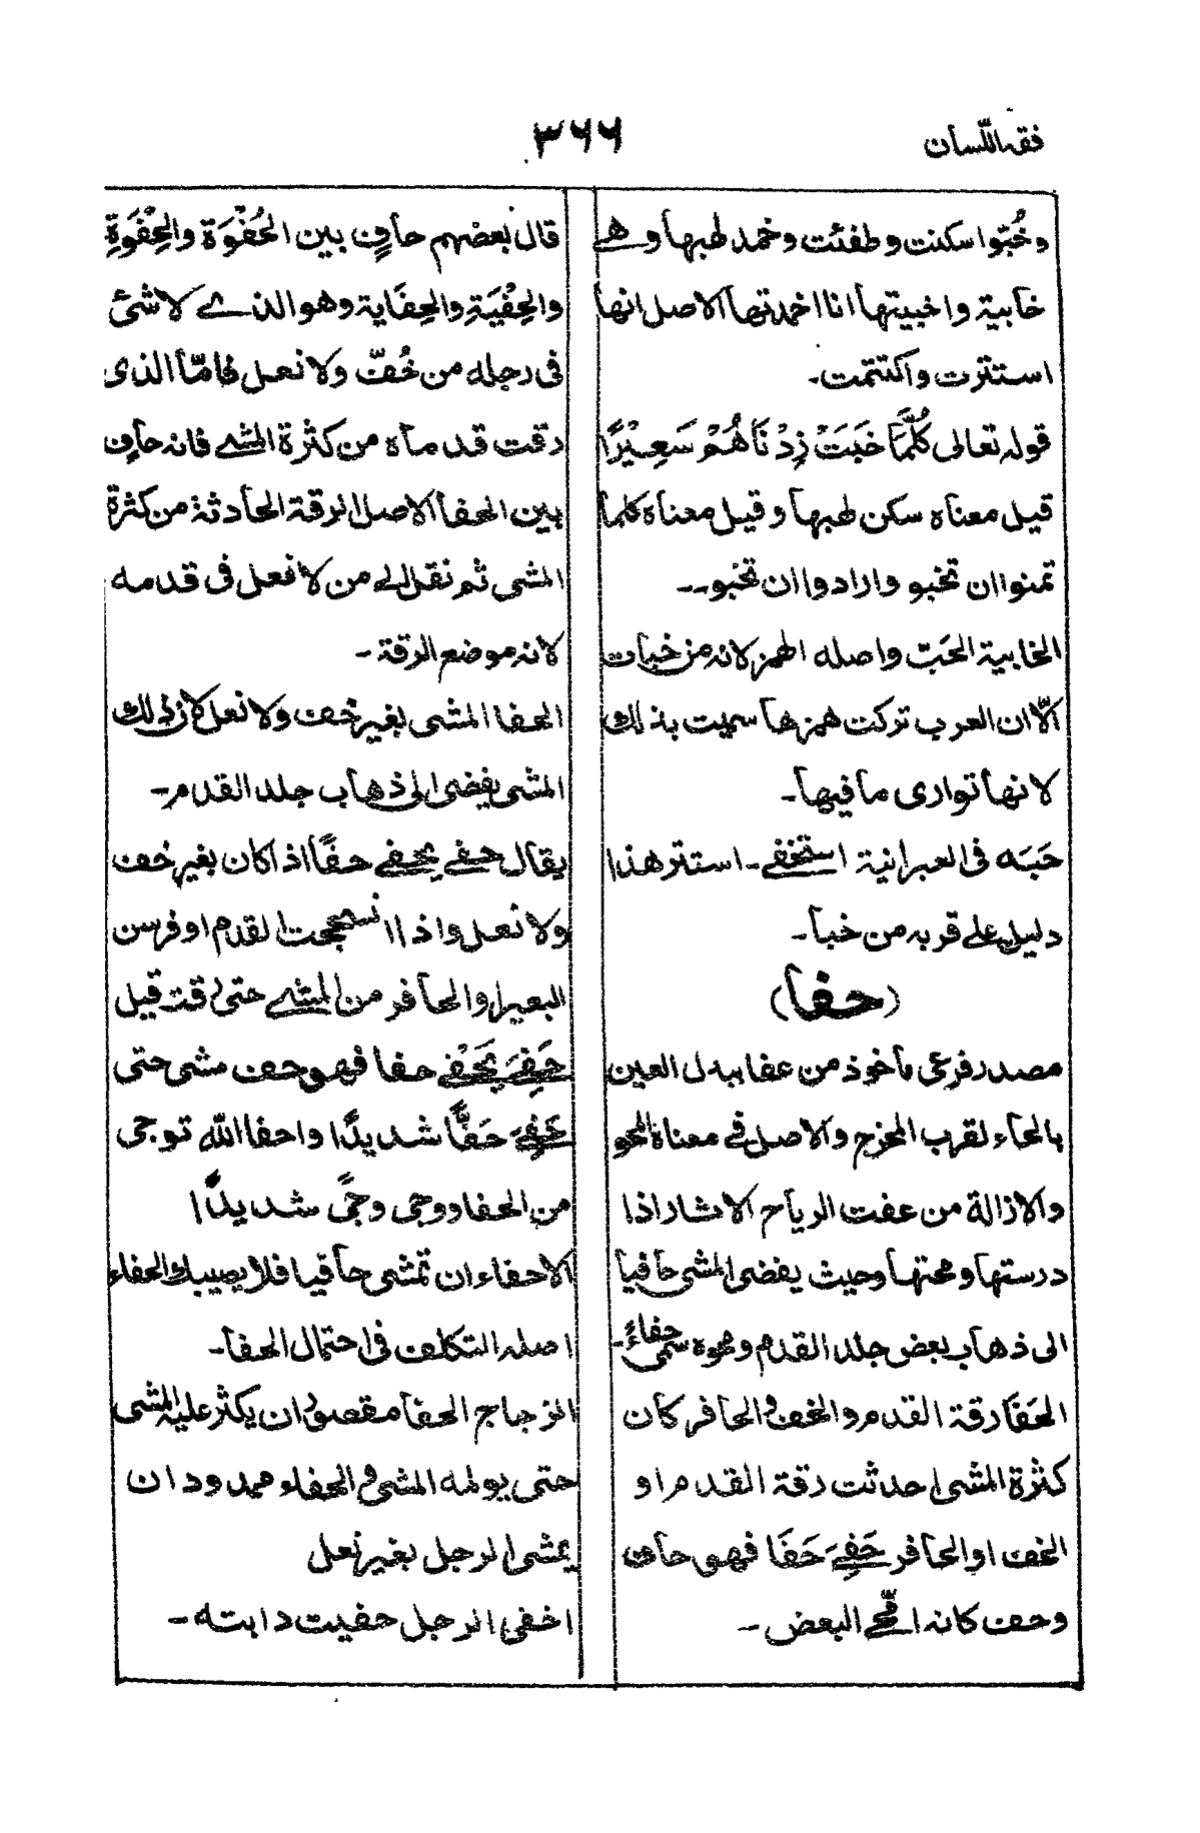 فقه اللّسان
٣٦٦
وخُبُوا سكنت وطفئت وخمد لهبها وهے
خابية واخبيتها انا اخمدتها الاصل انها
استترت واكتتمت۔
قوله تعالى كُلَّمَا خَبَتْ زِدْنَاهُمْ سَعِيْرًا
قيل معناه سكن لهبها وقيل معناه كلما
تمنوا ان تخبو وارادوا ان تخبو۔۔
الخابية الحَبّ واصله الهمز لانه من خبات
الّا ان العرب تركت همزها سميت بذلك
لانها توارى ما فيها۔
حَبَه فى العبرانية استخفے۔ استتر هذا
دليل علے قربه من خبأ۔
(حفا)
مصدر فرعى مأخوذ من عفا ببدل العين
بالحاء لقرب المخرج والاصل فے معناه المحو
والازالة من عفت الرياح الاثار اذا
درستها ومحتها وحيث يفضى المشى حافيا
الى ذهاب بعض جلد القدم ومحوه سمى حفاءً۔
الحَفَا رقة القدم والخف والحافر كان
كثرة المشى احدثت رقة القدم او
الخف او الحافر حَفِےَ حَفَا فهو حاف
وحف كانه امّحے البعض۔
قال بعضهم حافٍ بين الحُفْوَة والحِفْوَةِ
والحِفْيَةِ والحِفَاية وهو الذے لا شئ
فى رجله من خُفّ ولا نعل فامّا الذى
رقت قدماه من كثرة المشے فانه حافٍ
بين الحفا الاصل الرقة الحادثة من كثرة
المشى ثم نقل الے من لا نعل فى قدمه
لانه موضع الرقة۔
الحفا المشى بغير خف ولا نعل لان ذلك
المشى يفضى الى ذهاب جلد القدم۔
يقال حفے يحفے حفًا اذا كان بغير خف
ولا نعل واذا انسحجت القدم او فرسن
البعير او الحافر من المشے حتى رقت قيل
حَفِےَ يَحْفے حفا فهو حف مشى حتى
حَفِےَ حَفًا شديدًا واحفا الله توجى
من الحفا ووجى وجًى شديدًا
الاحفاء ان تمشى حافيا فلا يصيبك الحفاء
اصله التكلف فى احتمال الحفا۔
الزجاج الحفا مقصور ان يكثر عليه المشى
حتى يولمه المشى والحفاء ممدود ان
يمشى الرجل بغير نعل
احفى الرجل حفيت دابته۔